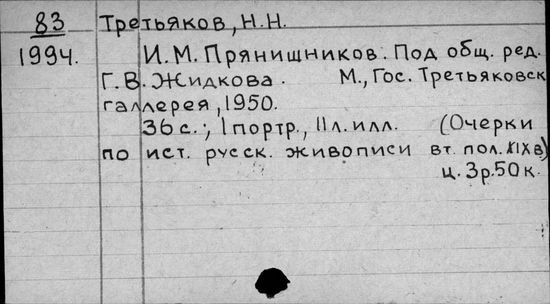 83 Третьяков, Н.Н.
1994. И.М. Прянишников. Под общ. ред.
Г.В. Жидкова. М., Гос. Третьяковск
галлерея, 1950.
36 с.; 1 портр., 11 л. илл. (Очерки
по ист. русск. живописи вт. пол. XIX в)
ц. 3р.50к.